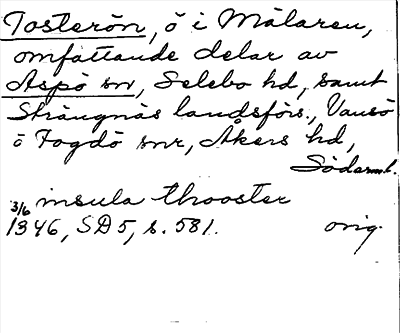 Tosterön, ö i Mälaren,
omfattande delar av
Aspö sn, Selebo hd, samt
Strängnäs landsförs., Vansö
o Fogdö snr, Åkers hd,
Söderml.
insula thooster
3/6
1346, SD 5, s. 581. orig.